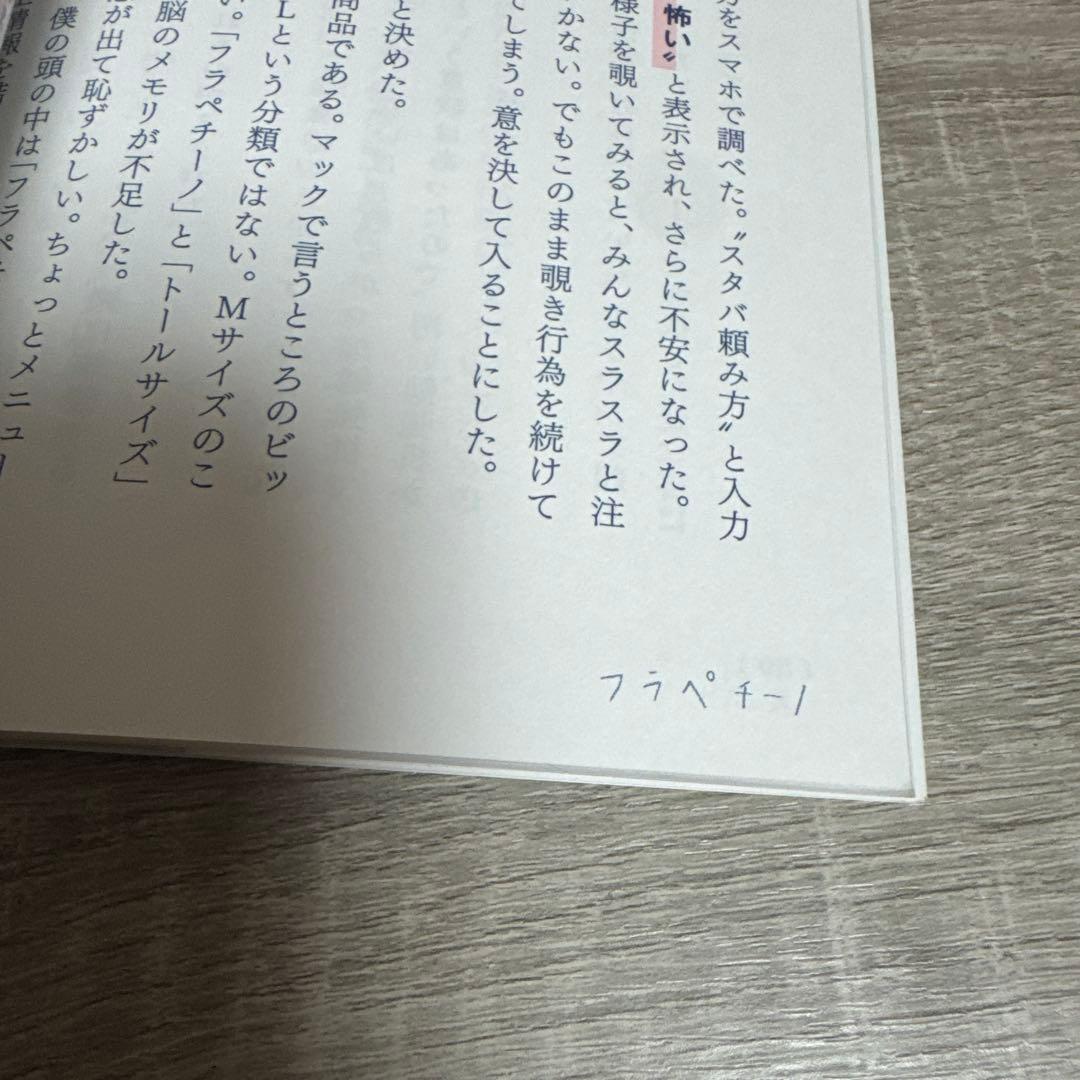 方をスマホで調べた。〝スタバ頼み方〟と入力
怖い〟と表示され、さらに不安になった。
様子を覗いてみると、みんなスラスラと注
かない。でもこのまま覗き行為を続けて
てしまう。意を決して入ることにした。
と決めた。
商品である。マックで言うところのビッ
Lという分類ではない。Mサイズのこ
い。「フラペチーノ」と「トールサイズ」
脳のメモリが不足した。
が出て恥ずかしい。ちょっとメニュー
僕の頭の中は「フラペチ
情報を
フラペチーノ